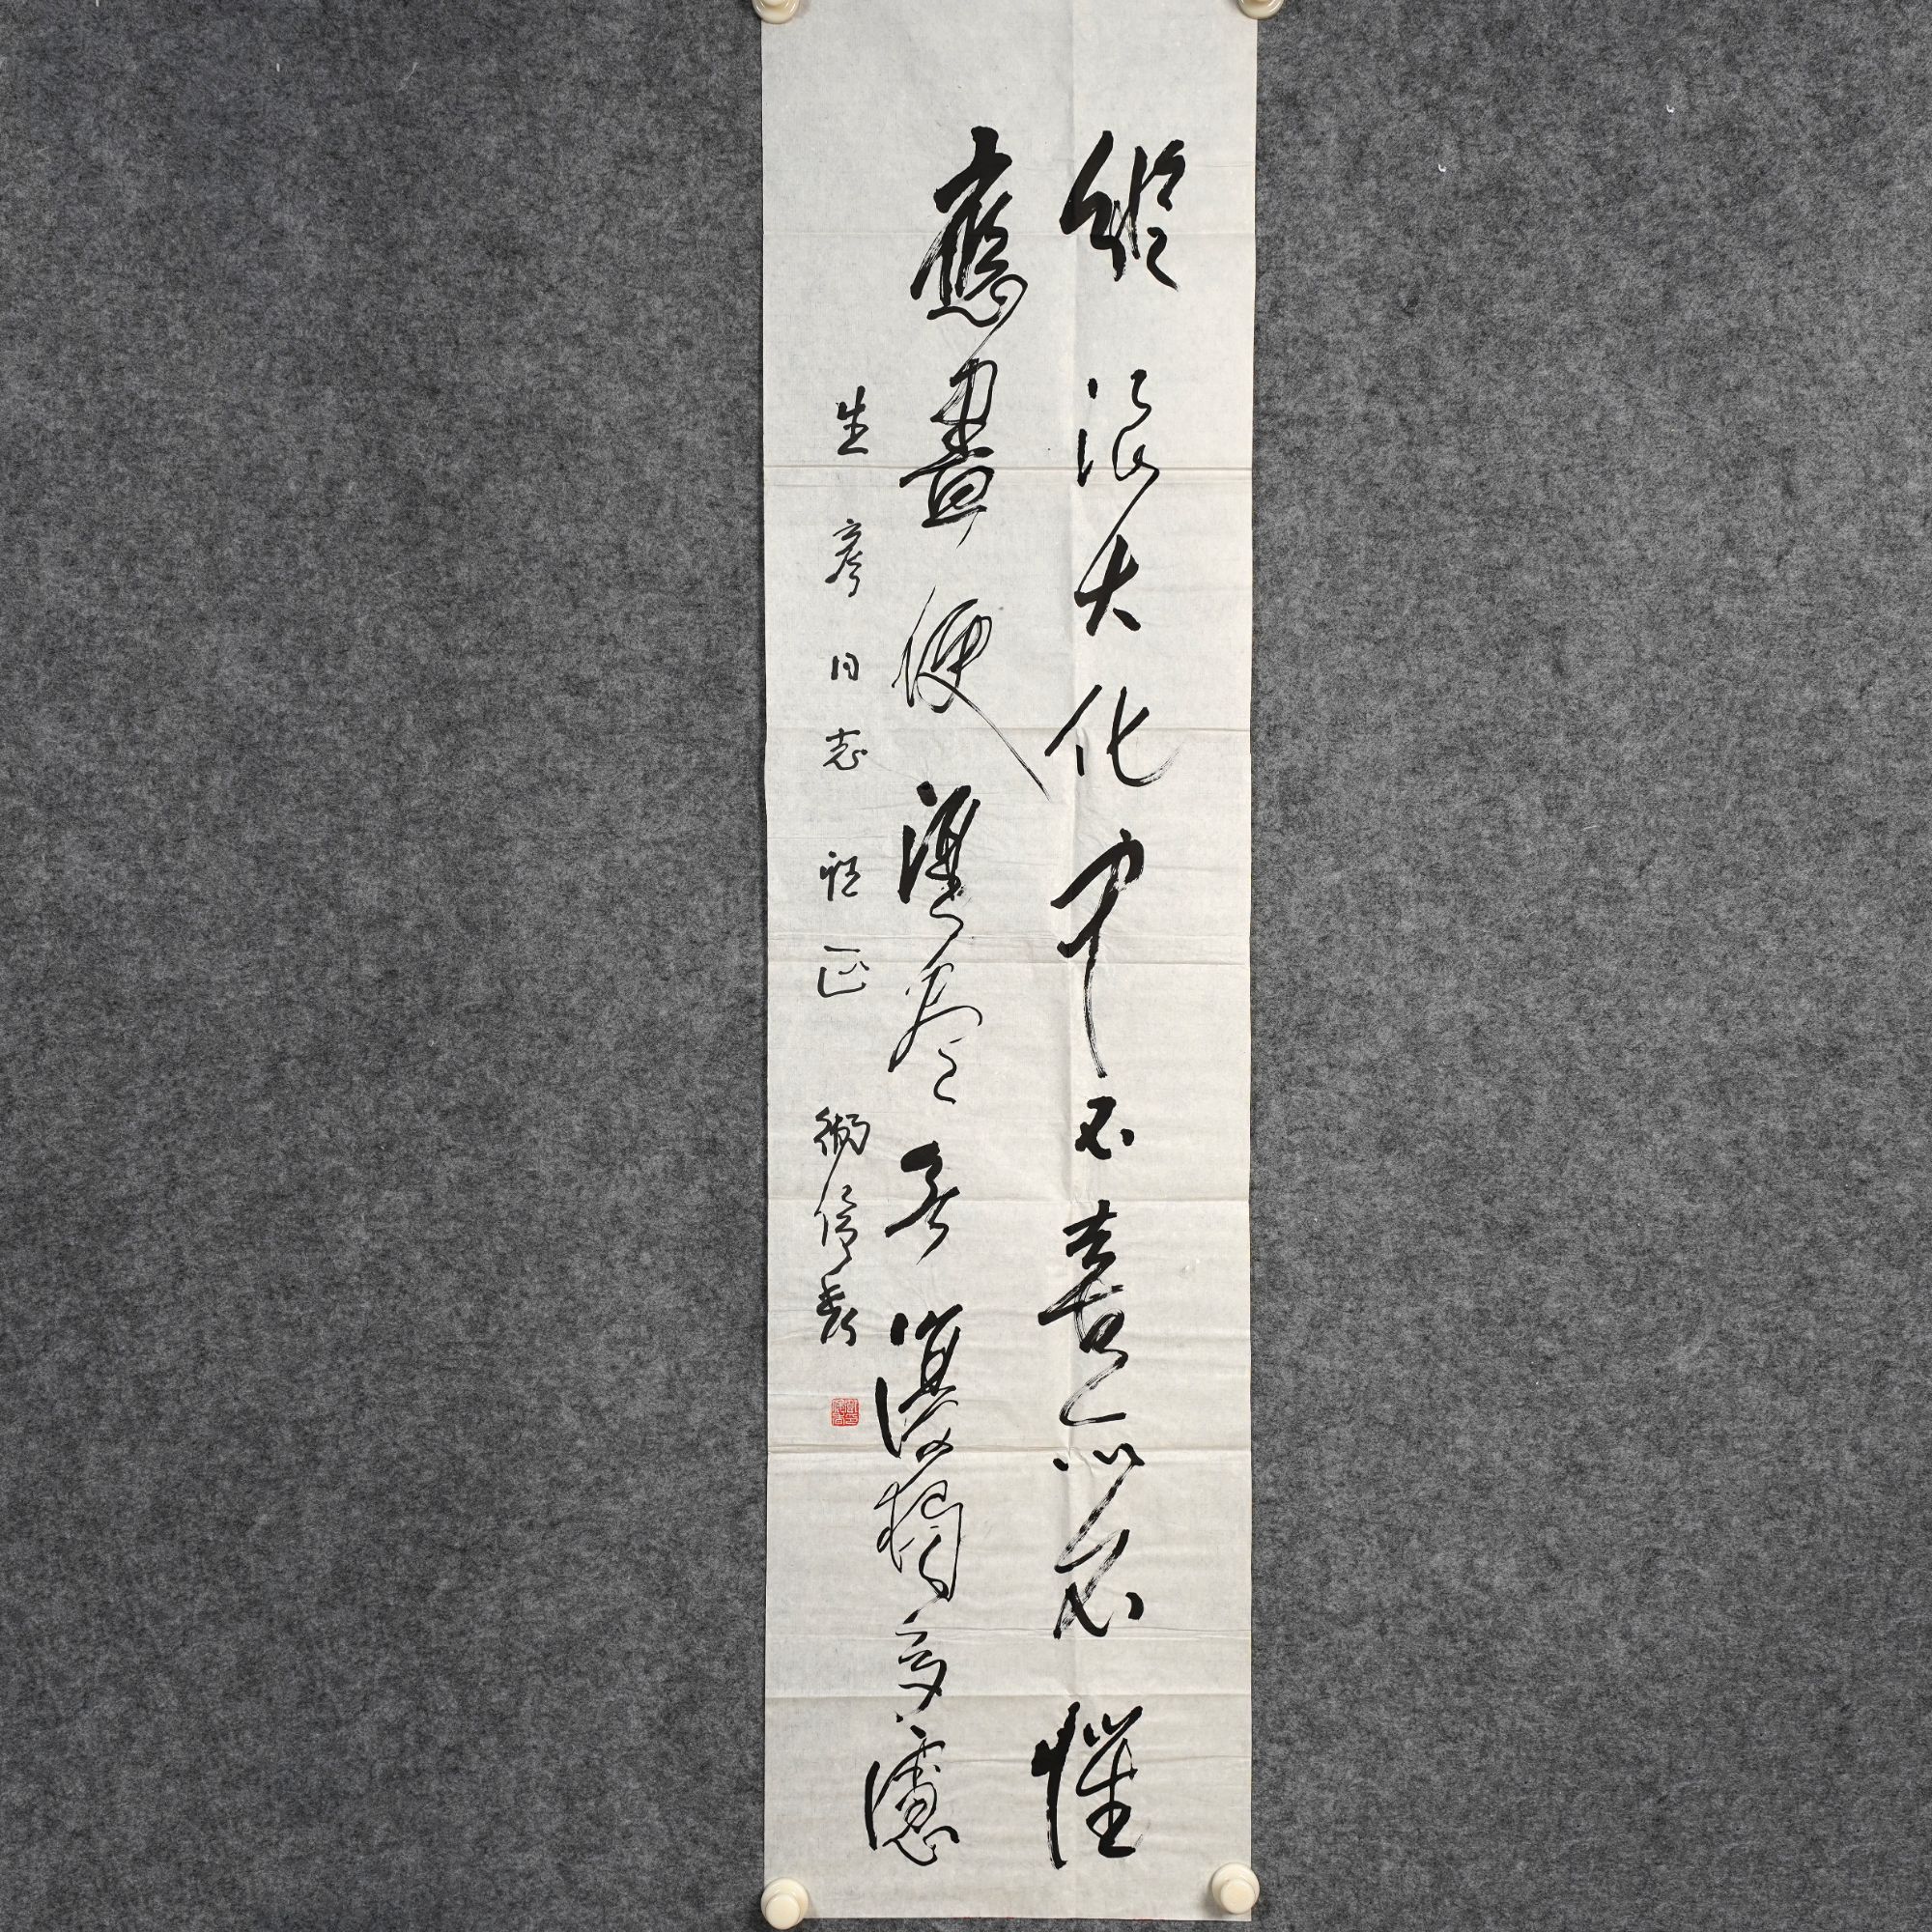 縱浪大化中不喜亦不懼
應盡便須盡無復獨多慮
生彦同志正 衛俊秀